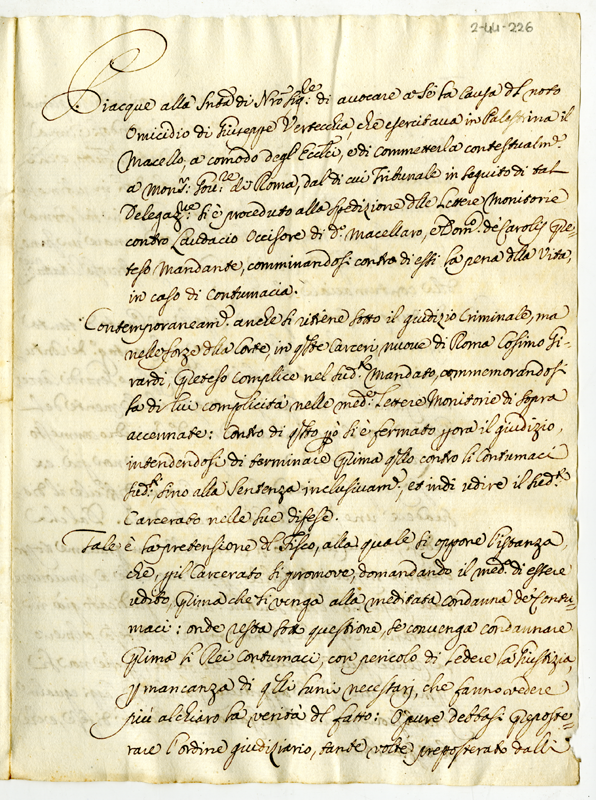 2-44-226
Piacque alla Sntà di Nro Sig.re di avocare a Sè la Causa dl noto
Omicidio di Giuseppe Vertecchia che esercitava in Palestrina il
Macello, a comodo degl' Eccl.ci, e di commetterla contestualm.e
a Mons.r Gov.re di Roma, dal di cui Tribunale in seguito di tal
Delegaz.ne si è proceduto alla spedizione dlle Lettere Monitorie
contro Laudacio Occisore di d.o Macellaro, e Dom.o de Carolis pre-
teso Mandante, comminandosi contro di essi la pena dlla Vita,
in caso di Contumacia.
Contemporaneam.e anche si ritiene sotto il giudizio Criminale, ma
nelle forze dlla Corte, in qste Carceri nuove di Roma Cosimo Gi-
rardi, preteso complice nel sud.o Mandato, commemorandosi
la di lui complicità nelle med.e Lettere Monitorie di sopra
accennate: Contro di qsto pò si è fermato p ora il giudizio,
intendendosi di terminare prima qllo contro li Contumaci
sud.i, sino alla Sentenza inclusivam.e, et indi udire il sud.o
Carcerato nelle sue difese.
Tale è la pretensione dl Fisco, alla quale si oppone l'istanza,
che, p il Carcerato si promove, domandando il med.o di essere
udito, prima che si venga alla meditata condanna de Contu-
maci: onde resta sott questione, se convenga condannare
prima li Rei Contumaci, con pericolo di ledere la Giustizia,
p mancanza di qlli lumi necessarj, che fanno vedere
più al chiaro la verità dl fatto: Oppure debbasi preposte-
rare l'ordine giudiziario, tante volte prepposterato dalli